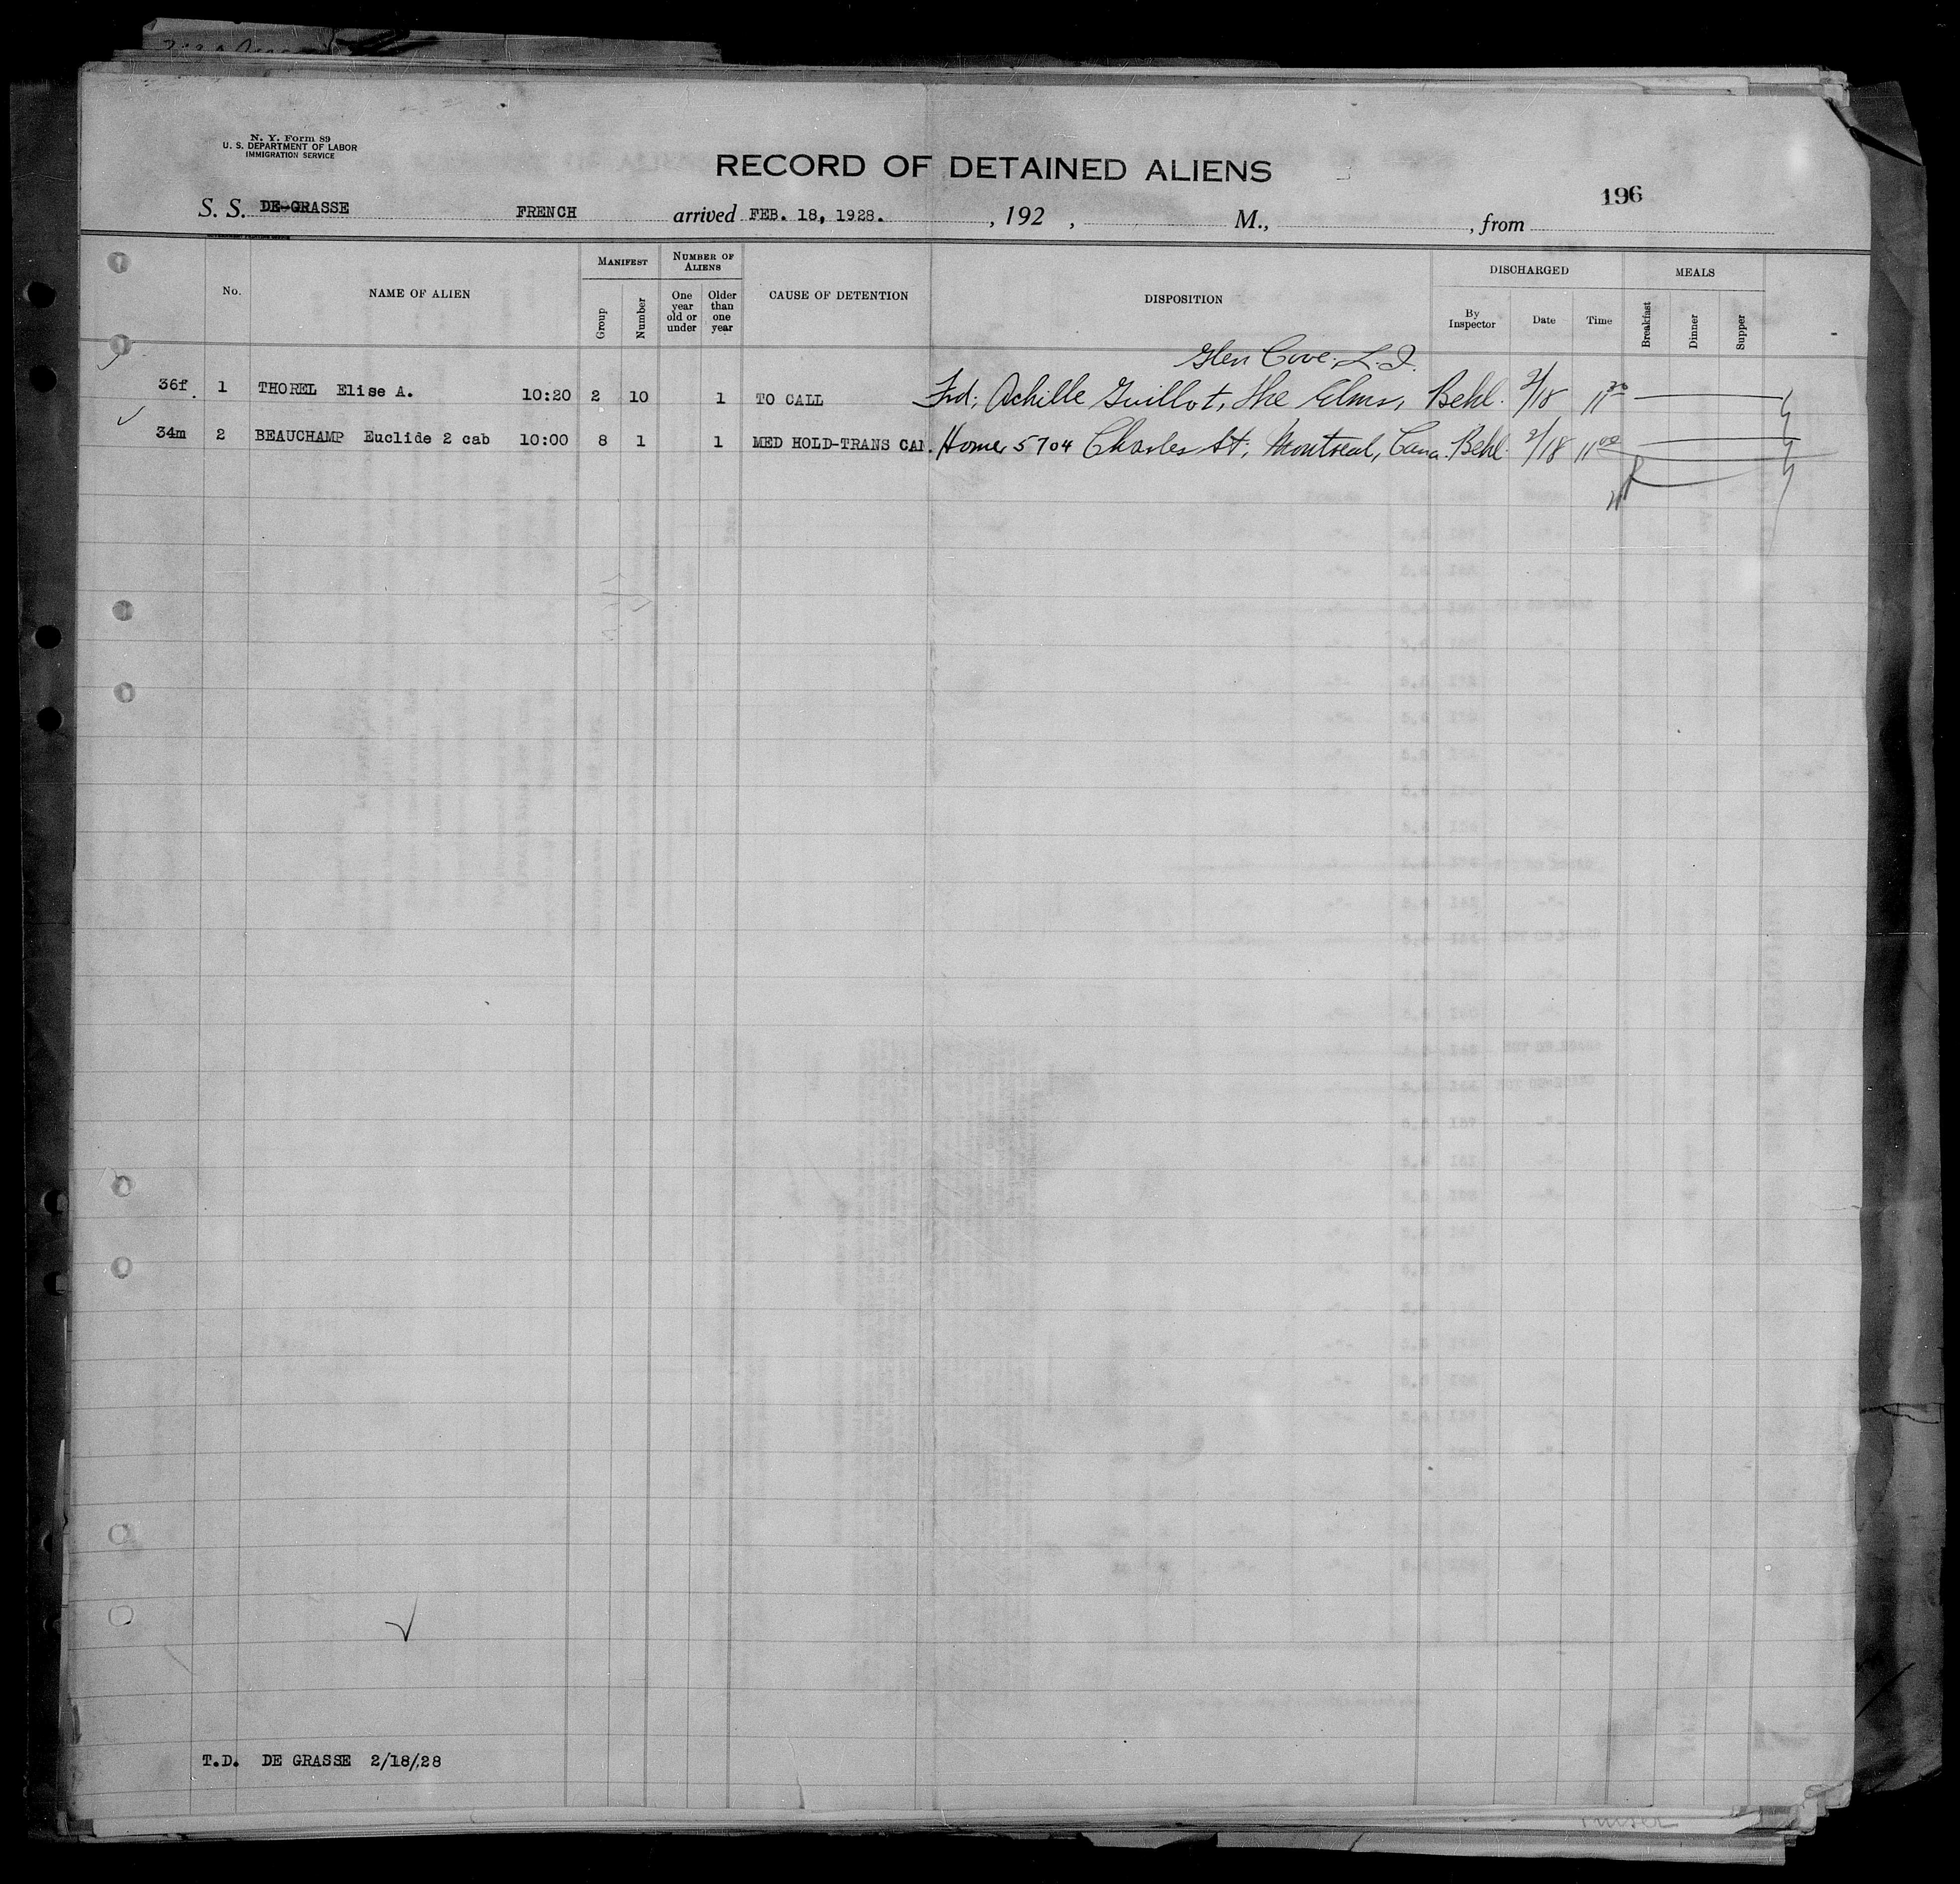 N. Y. Form 89
U. S. DEPARTMENT OF LABOR
IMMIGRATION SERVICE
RECORD OF DETAINED ALIENS
196
S. S. DE-GRASSE FRENCH arrived FEB. 18, 1928. , 192 , M., , from
No. NAME OF ALIEN MANIFEST Group Number NUMBER OF ALIENS One year old or under Older than one year CAUSE OF DETENTION DISPOSITION DISCHARGED By Inspector Date Time MEALS Breakfast Dinner Supper
Glen Cove, L. I.
36f. 1 THOREL Elise A. 10:20 2 10 1 TO CALL Frd, Achille Guillot, The Elms, Behl. 2/18 11 30
34m 2 BEAUCHAMP Euclide 2 cab 10:00 8 1 1 MED HOLD-TRANS CAN. Home, 5704 Charles St, Montreal, Cana. Behl. 2/18 11 00
T.D. DE GRASSE 2/18/28